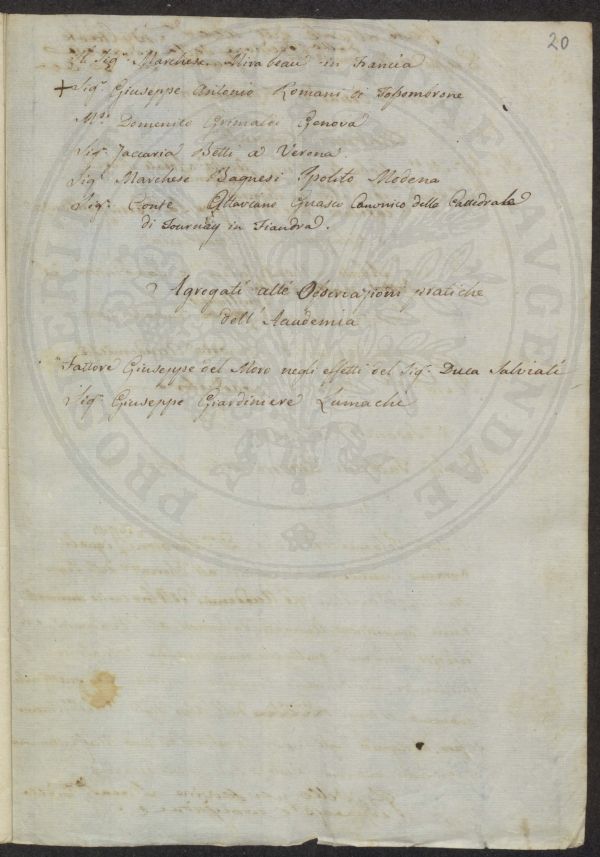 20
Il Sig.r Marchese Mirabeau in Francia
+ Sig.r Giuseppe Antonio Romani di
M.se Domenico Grimaldi Genova
Sig.r Zaccaria Betti a Verona.
Sig.r Marchese Bagnesi Ipolito Modena
Sig.r Conte Ottaviano Guasco Canonico della Cattedrale
di Tournay in Fiandra.
Agregati alle Osservazioni pratiche
dell'Accademia
Fattore Giuseppe del Moro negli effetti del Sig.r Duca Salviati
Sig.r Giuseppe Giardiniere Lumachi
PROSPERITATI AUGENDAE